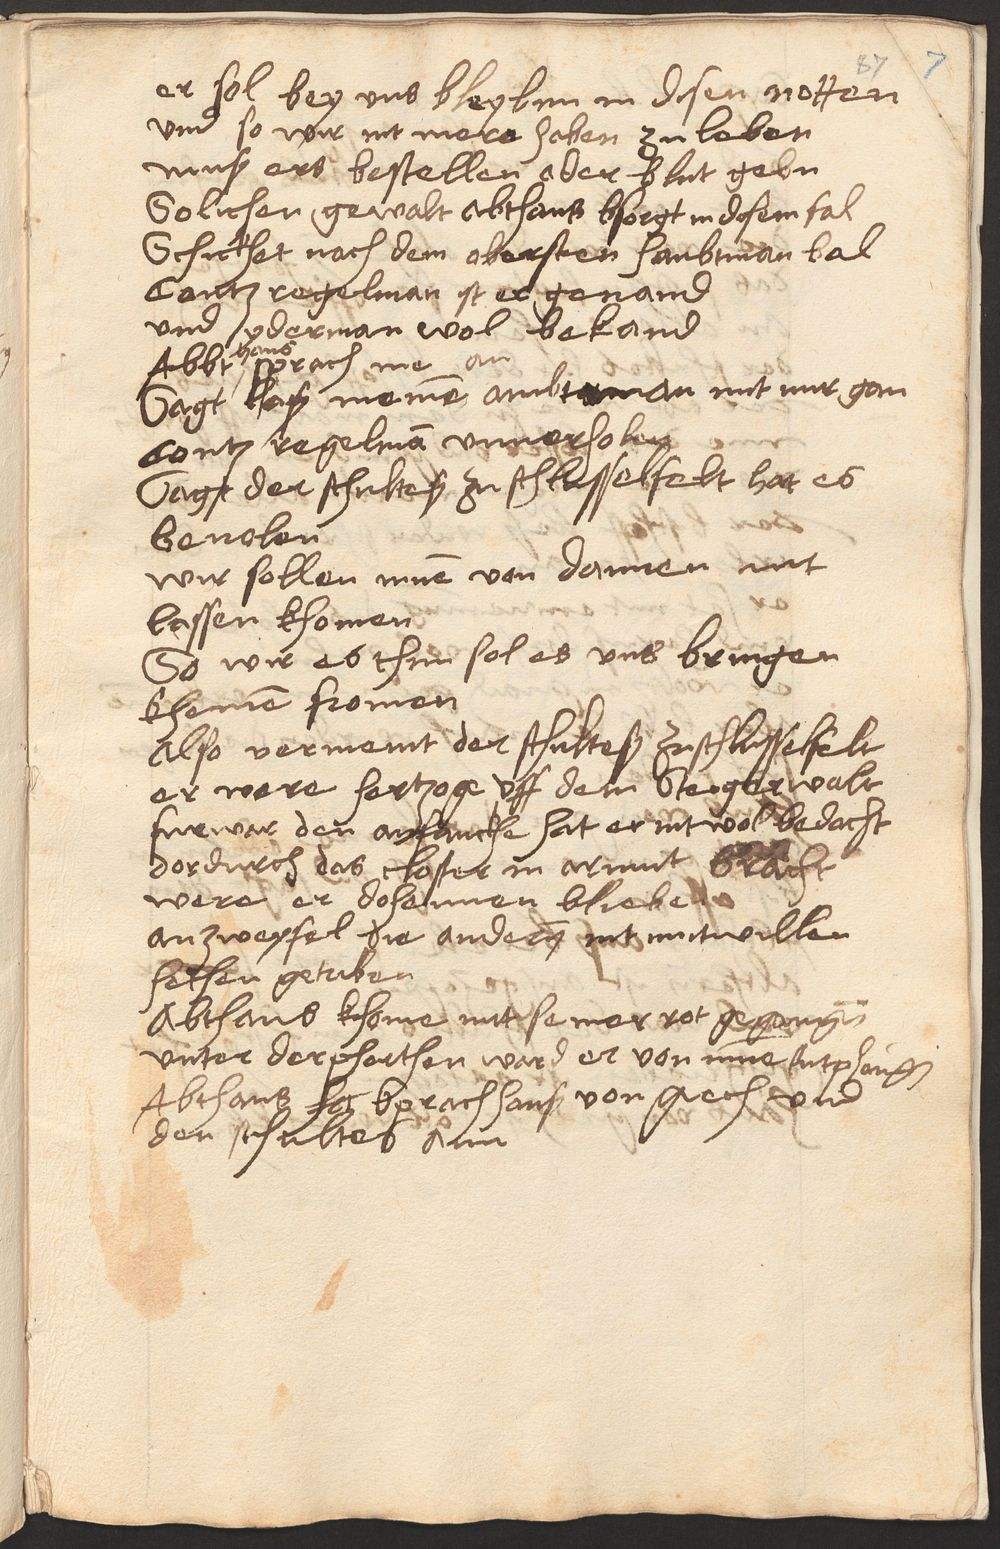 87 7
er sol bey uns bleyben in disen notten
und so wir nit mere haben zu leben
mus ers bestellen oder blut gebn
Solichen gewalt Abthans bsorgt in disem fal
Schickhet nach dem obersten haubtman bal
Contz regelman ist er genand
und yderman wol bekand
Abbt hans sprach ine an
Sagt las meinē ambtman mit mir gan
Contz regelmā unverholen
Sagt der schultes zu schlusselfelt hat es
bevolen
wir sollen inē von dannen nit
lassen khomen
So wir es thun sol es uns bringen
kheinē fromen
Also vermeint der schultes zu schlusselfelt
er were hertzoge uff dem Steigerwalt
furwar den anfanckhe hat er nit wol bedacht
dordurch das closter in armut bracht
were er doheimen blieben
an zweyfel die andern nit mutwillen
hetten getriben
Abthans khome mit seiner rot gegangen
unter der pforthen ward er von ime entpfangen
Abthans sprach hans von giech und
den schultes ann